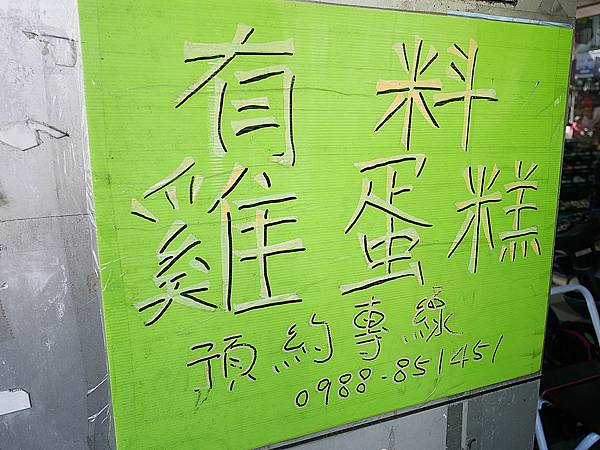 有料
雞蛋糕
預約專線
0988-851451